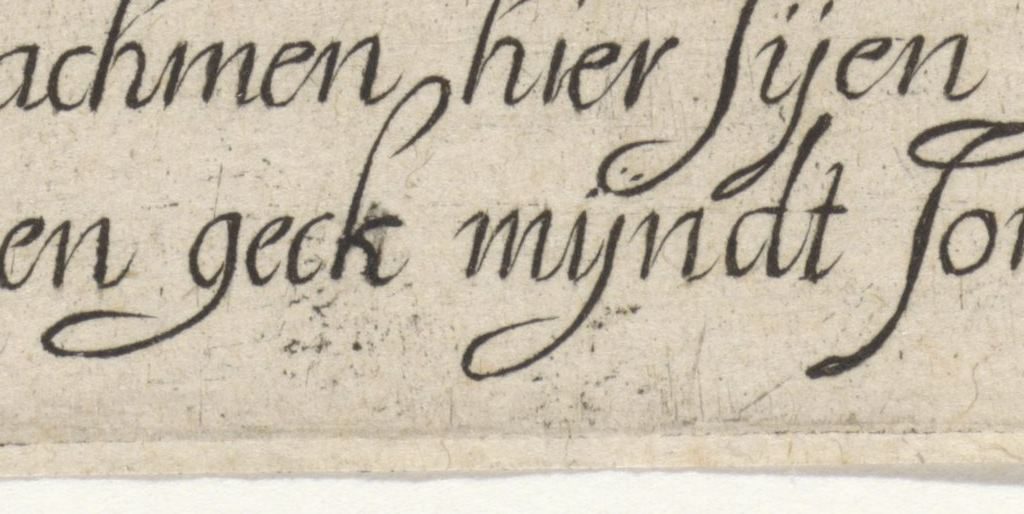 achmen hier sijen
en geck mijndt son